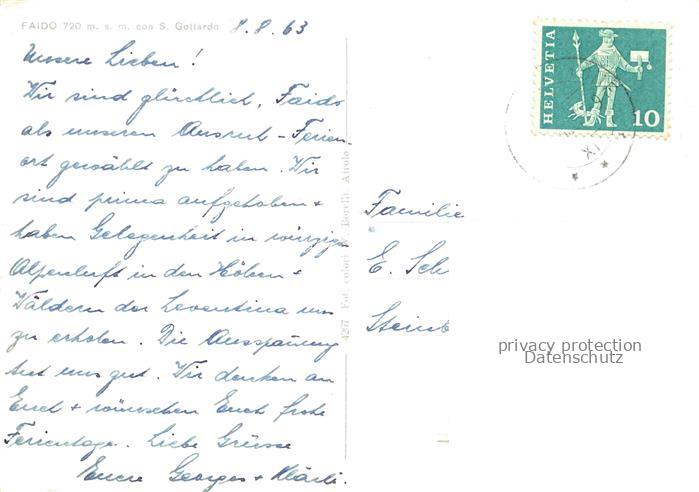 FAIDO 720 m. s. m. con S. Gottardo
8.8.63
Unsere Lieben!
Wir sind glücklich, Faido
als unseren Ausruh-Ferien-
ort gewählt zu haben. Wir
sind prima aufgehoben +
haben Gelegenheit in würziger
Alpenluft in den Höhen +
Wäldern der Leventina uns
zu erholen. Die Ausspannung
tut uns gut. Wir denken an
Euch + wünschen Euch frohe
Ferientage. Liebe Grüsse
Eure Georges + Klärli.
4207 Fot. colori Borelli Airolo
HELVETIA
10
IX
Familie
E. Sch
Steinb
privacy protection
Datenschutz